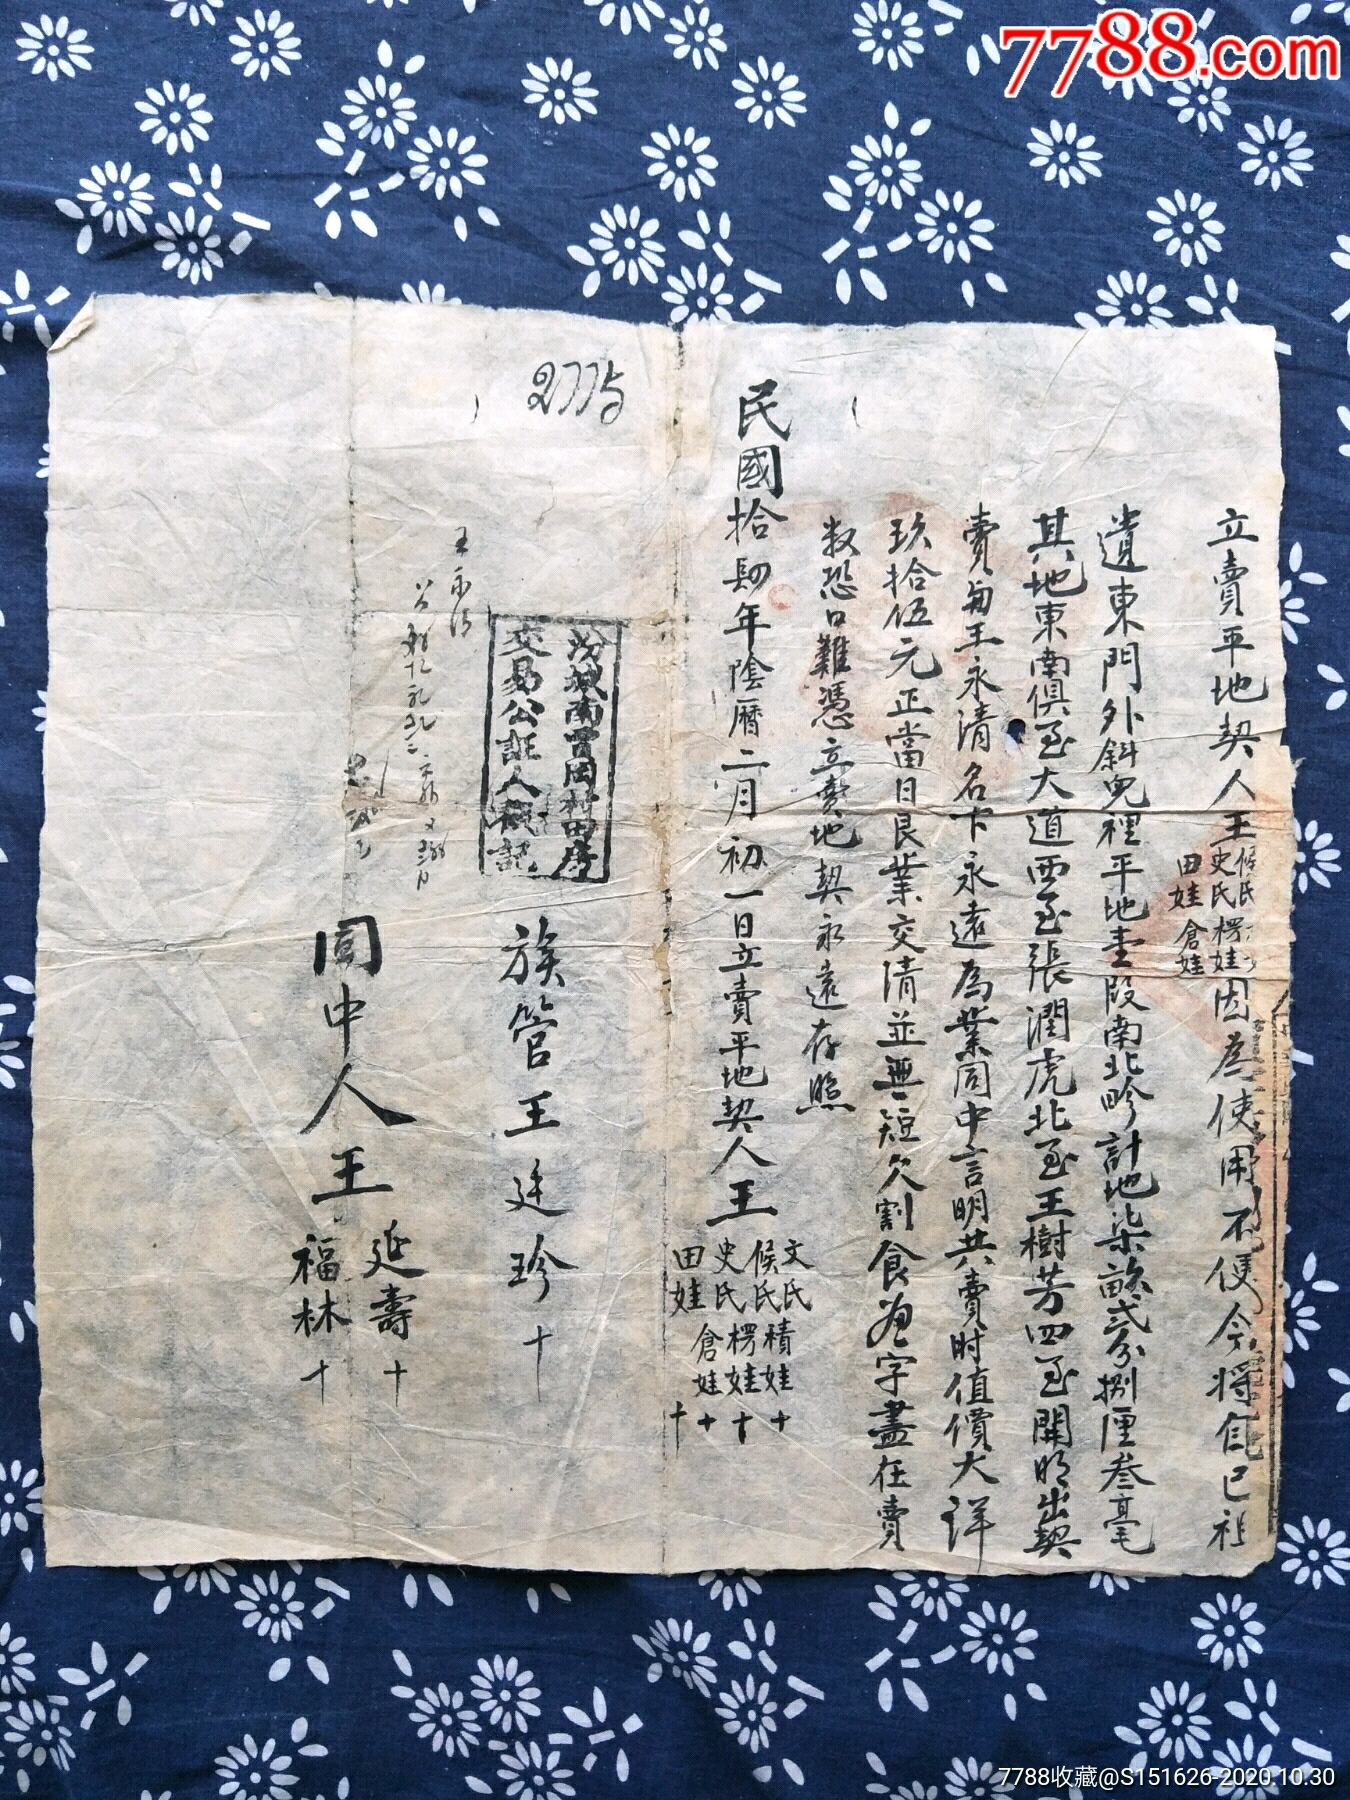 7788.com
立賣平地契人王
侯氏
史氏楞娃
田娃倉娃
因爲使用不便今將自己祖
遺東門外斜兒裡平地壹段南北畛計地柒畝弍分捌厘叁毫
其地東南俱至大道西至張潤虎北至王樹芳四至開明出契
賣與王永清名下永遠為業同中言明共賣時值價大洋
玖拾伍元正當日艮業交清並無短欠割食畫字盡在賣
数恐口難憑立賣地契永遠存照
民國拾肆年陰曆二月初一日立賣平地契人王
文氏積娃十
侯氏楞娃十
史氏倉娃十
田娃十
2775
汾城南膏固村田房
交易公証人穂記
族管王廷珍十
王永清
同中人王
延壽十
福林十
7788收藏@S151626-2020.10.30